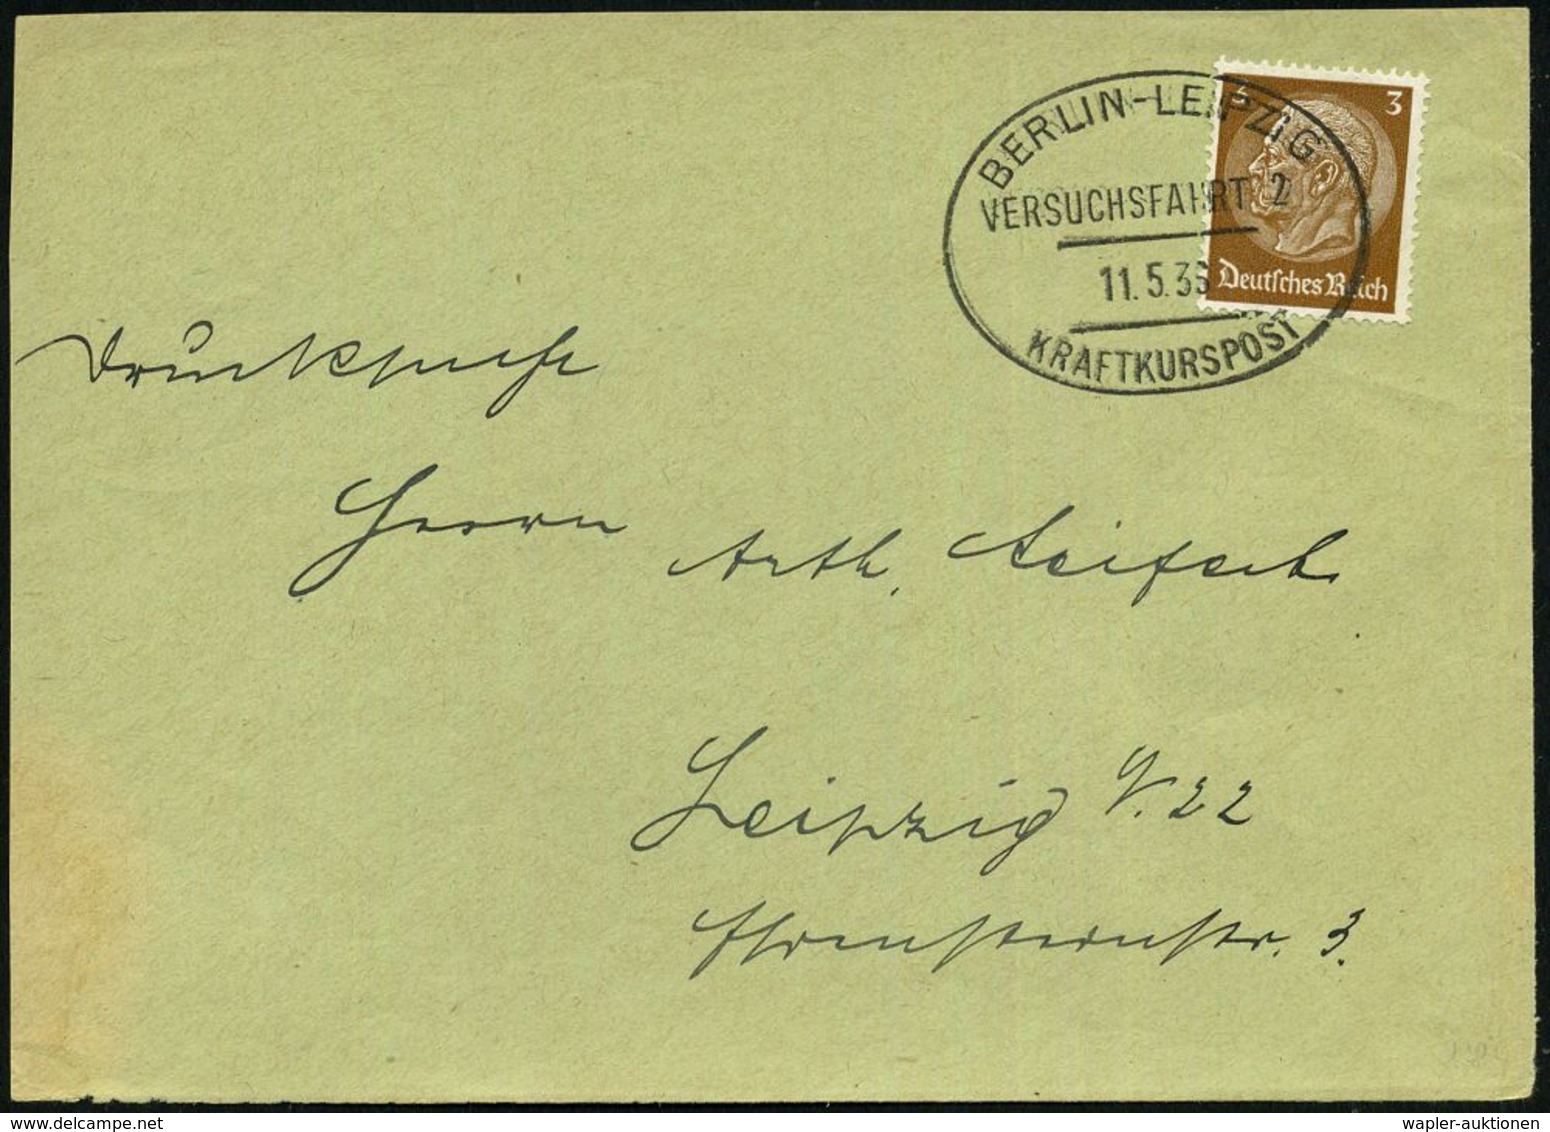 BERLIN-LEIPZIG
VERSUCHSFAHRT 2
11.5.36
KRAFTKURSPOST
3 3
Deutsches Reich
Drucksache
Herrn Arth. Seifert
Leipzig N. 22
Ehrensteinstr. 3.
wapler-auktionen
www.delcampe.net